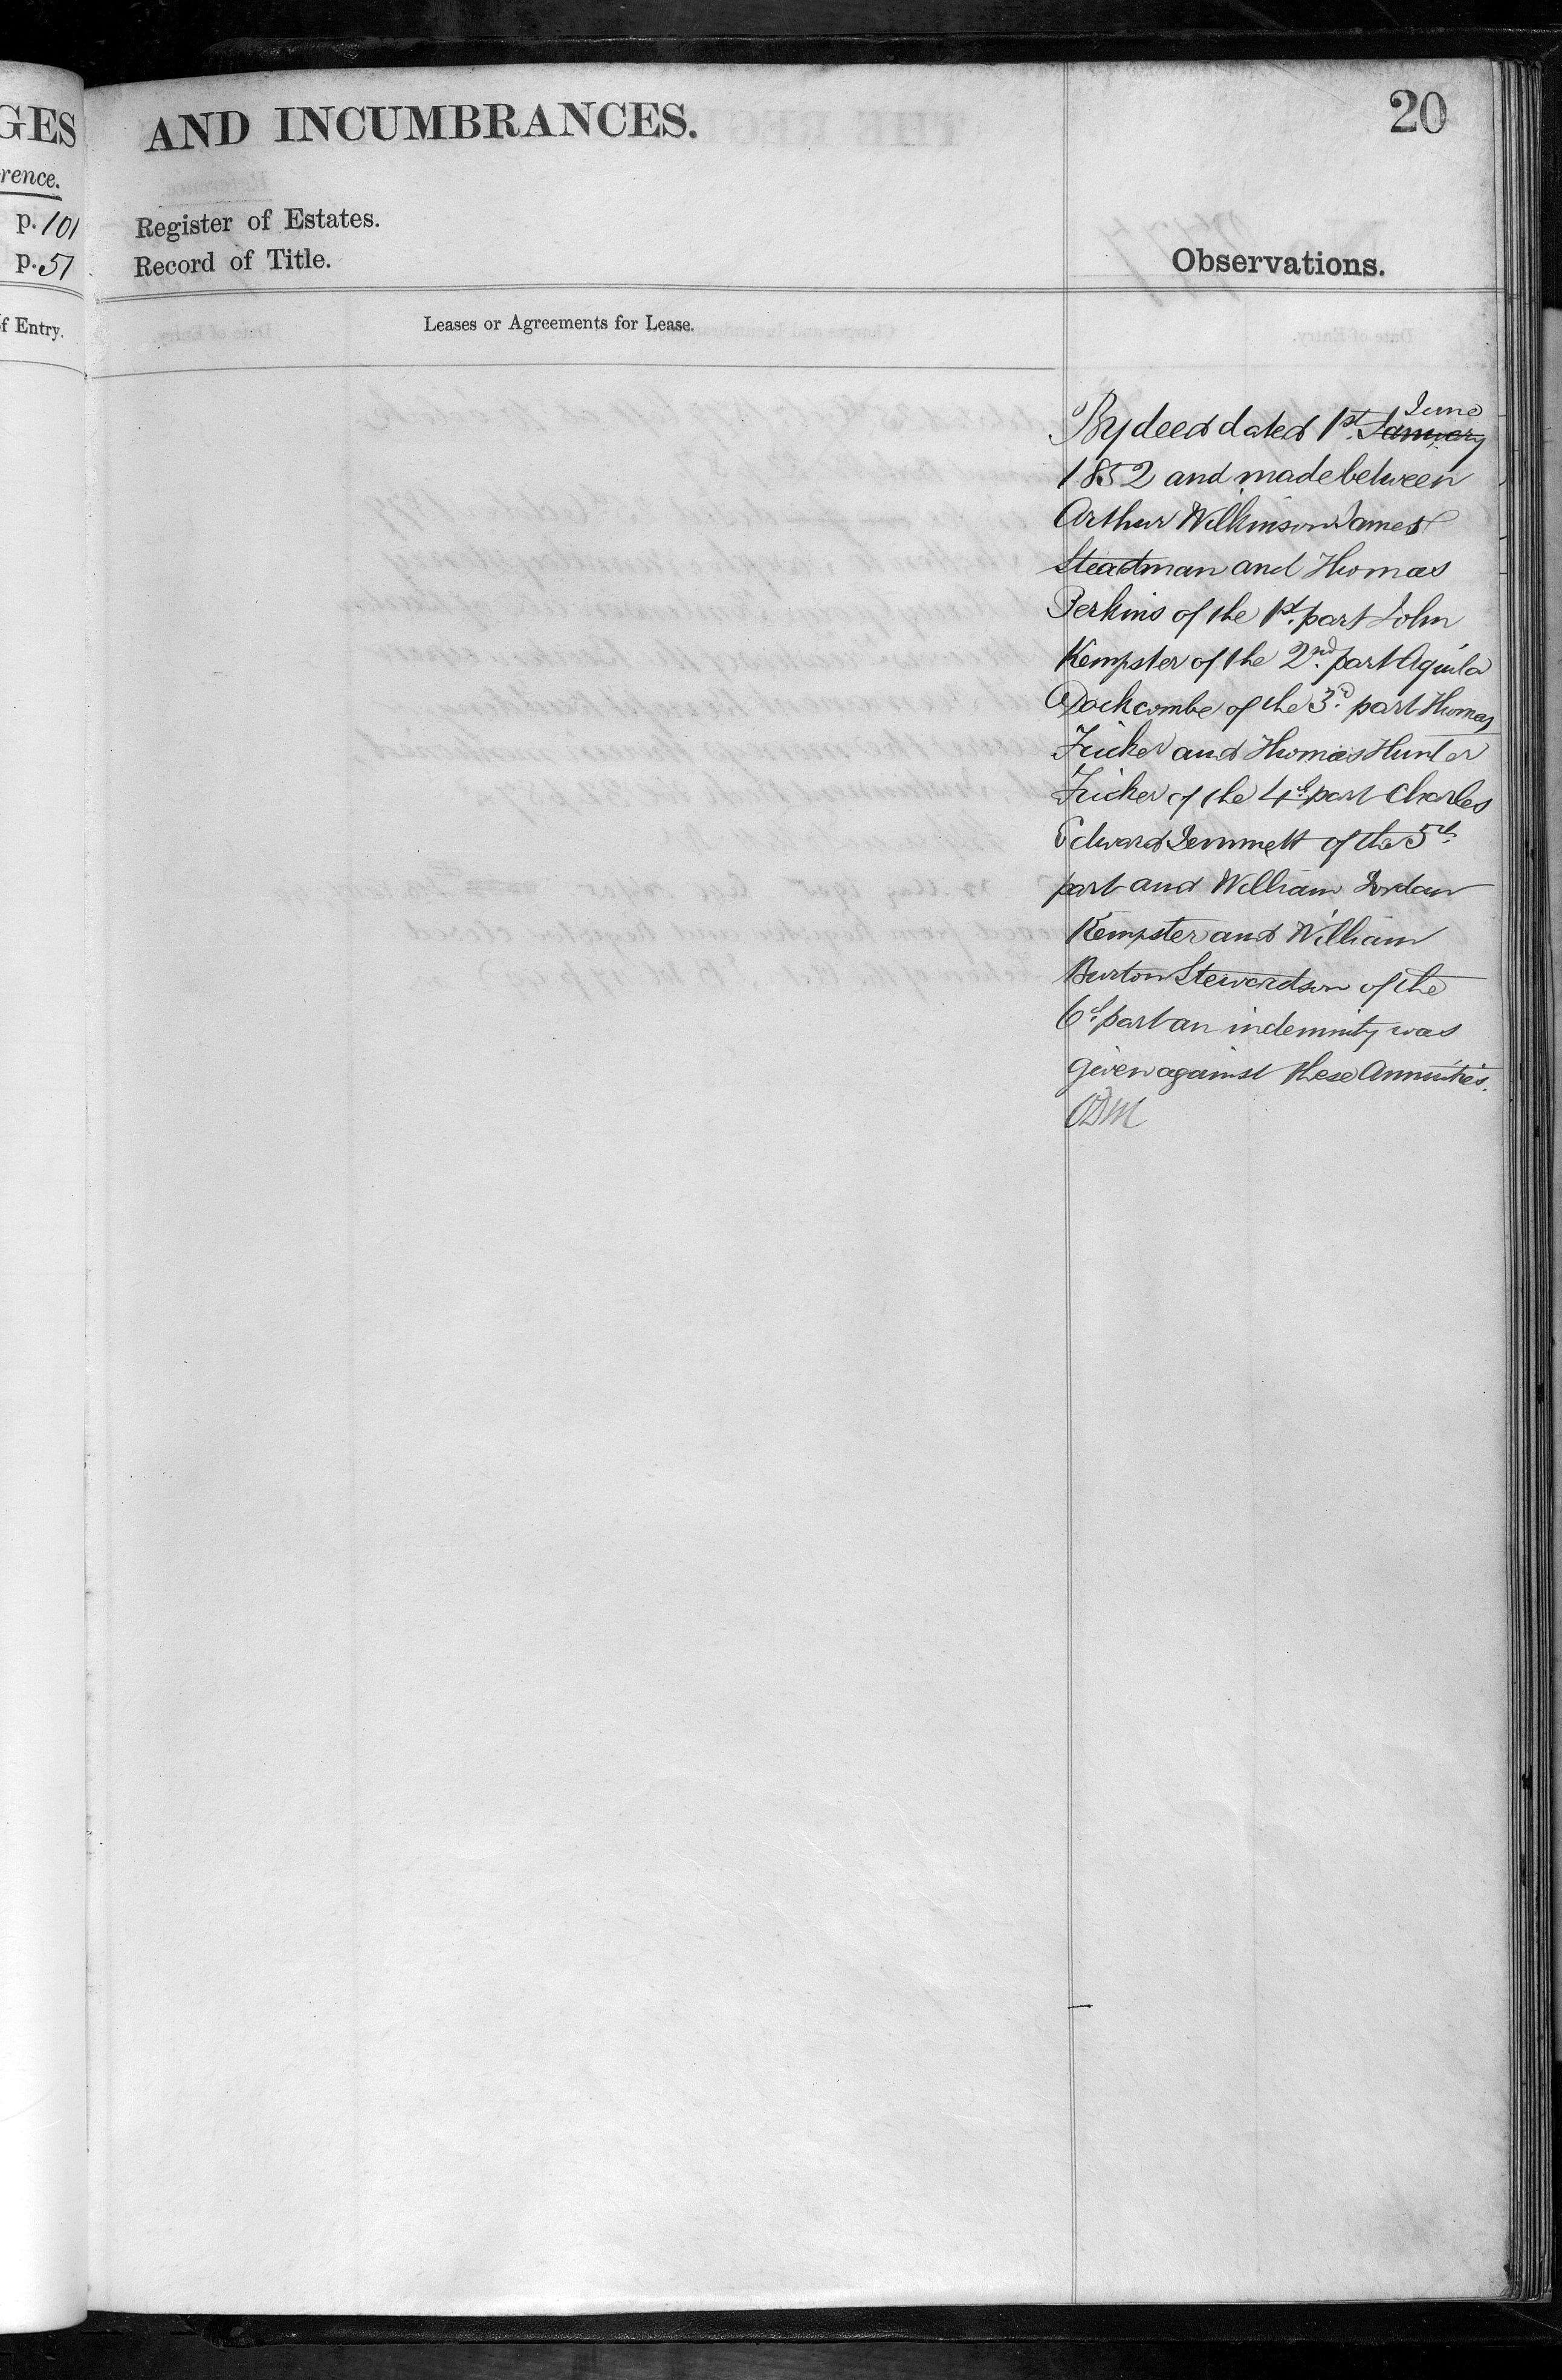 GES
rence.
p. 101
p. 51
f Entry.
20
AND INCUMBRANCES.
Register of Estates.
Record of Title.
Observations.
Leases or Agreements for Lease.
June
By deed dated 1st. January
1852 and made between
Arthur Wilkinson James
Steadman and Thomas
Perkins of the 1st. part John
Kempster of the 2nd. part Aquila
Dackcombe of the 3d. part Thomas
Fricker and Thomas Hunter
Fricker of the 4th. part Charles
Edward Jemmett of the 5th.
part and William Jordan
Kempster and William
Burton Stewardson of the
6th. part an indemnity was
given against these Annuities.